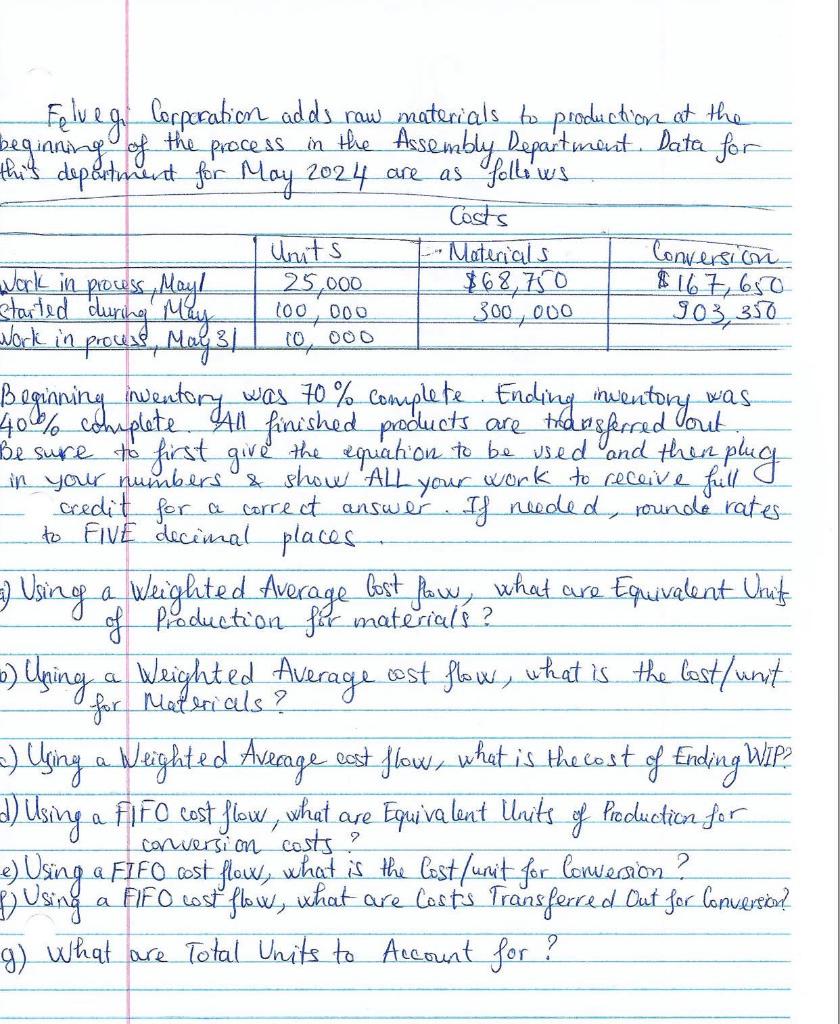 Felvegi Corporation adds raw materials to production at the
beginning of the process in the Assembly Department. Data for
this department for May 2024 are as follows
Costs
Units Materials Conversion
Work in process, May 1 25,000 $68,750 $167,650
Started during May 100,000 300,000 903,350
Work in process, May 31 10,000
Beginning inventory was 70% complete. Ending inventory was
40% complete. All finished products are transferred out.
Be sure to first give the equation to be used and then plug
in your numbers & show ALL your work to receive full
credit for a correct answer. If needed, rounde rates
to FIVE decimal places.
a) Using a Weighted Average Cost flow, what are Equivalent Units
of Production for materials?
b) Using a Weighted Average cost flow, what is the Cost/unit
for Materials?
c) Using a Weighted Average cost flow, what is the cost of Ending WIP?
d) Using a FIFO cost flow, what are Equivalent Units of Production for
conversion costs?
e) Using a FIFO cost flow, what is the Cost/unit for Conversion?
f) Using a FIFO cost flow, what are Costs Transferred Out for Conversion?
g) What are Total Units to Account for?